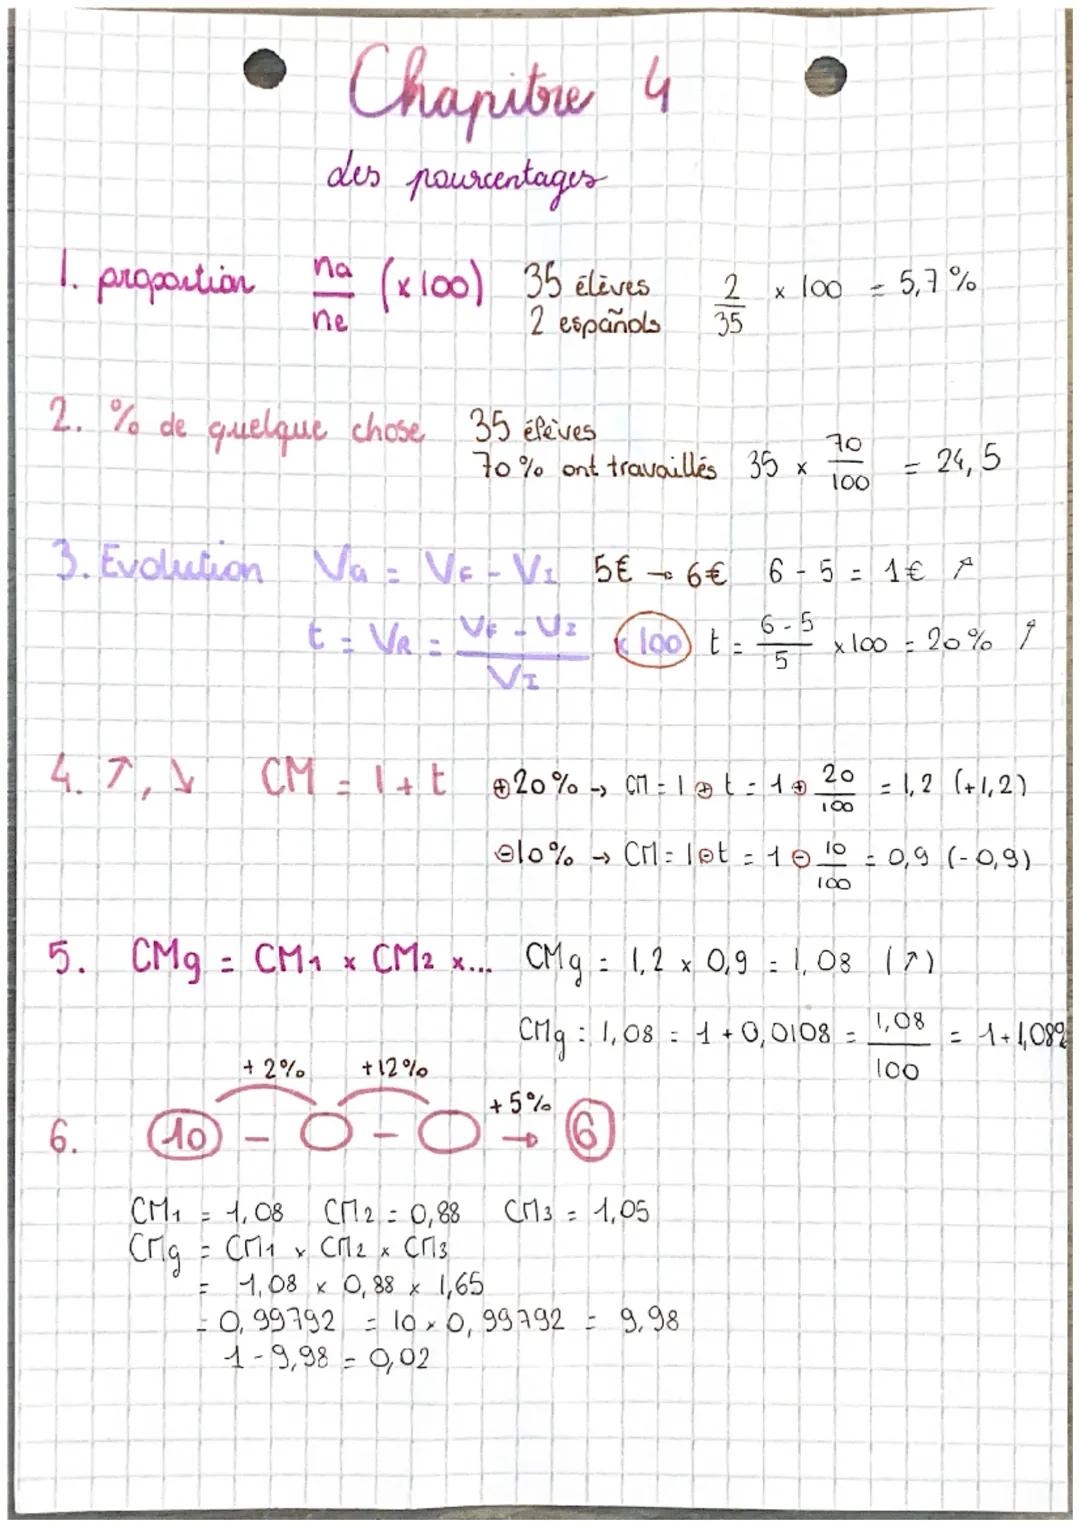 Chapitre 4
des pourcentages
1. proportion na/ne (x100) 35 élèves 2/35 x 100 = 5,7%
2 español​s
2. % de quelque chose 35 élèves
70% ont travaillés 35 x 70/100 = 24,5
3. Evolution Va = VF - VI 5€ → 6€ 6 - 5 = 1€ ↗
t = VR = VF - VI/VI x 100 t = 6-5/5 x100 = 20% ↗
4. ↗, ↘ CM = 1 + t ⊕20% → CM = 1 ⊕ t = 1 ⊕ 20/100 = 1,2 (+1,2)
⊖10% → CM = 1⊖t = 1 ⊖ 10/100 = 0,9 (-0,9)
5. CMg = CM1 x CM2 x... CMg = 1,2 x 0,9 = 1,08 (↗)
CMg = 1,08 = 1 + 0,0108 = 1,08/100 = 1+1,08%
+2% +12%
+5%
6. 10 - ○ - ○ → 6
CM1 = 1,08 CM2 = 0,88 CM3 = 1,05
CMg = CM1 x CM2 x CM3
= 1,08 x 0,88 x 1,65
= 0,99792 = 10 x 0,99792 = 9,98
1 - 9,98 = 0,02